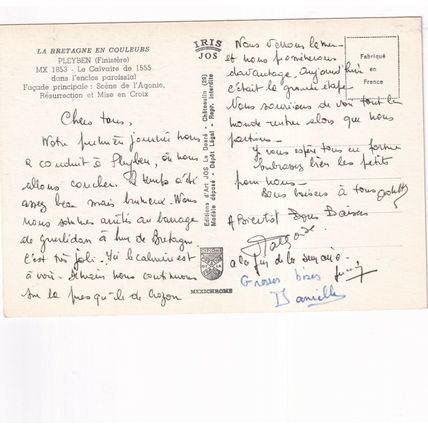 LA BRETAGNE EN COULEURS
PLEYBEN (Finistère)
MX 1853 - Le Calvaire de 1555
dans l'enclos paroissial
Façade principale : Scène de l'Agonie,
Résurrection et Mise en Croix
Chers tous,
Notre première journée nous
a conduit à Pleyben, où nous
allons coucher. Le temps a été
assez beau mais brumeux. Nous
nous sommes arrêtés au barrage
de Guerlédan à Mur de Bretagne.
C'est très joli. Ici le calvaire est
à voir. Demain nous continuons
sur la presqu'île de Crozon
IRIS
JOS
Editions d'Art JOS Le Doaré - Châteaulin (29)
Modèle déposé - Dépôt Légal - Repr. interdite
MEXICHROME
Fabriqué
en
France
Nous verrons la mer
et nous
davantage. Aujourd'hui
c'était la grande étape
Nous
monde rentrer alors que nous
partions
J'vous espère tous en forme
Embrassez bien les petits
pour nous.
Bons baisers à tous
A Bientôt Bons Baisers
a la fin de la semaine
Grosses bises
Danielle